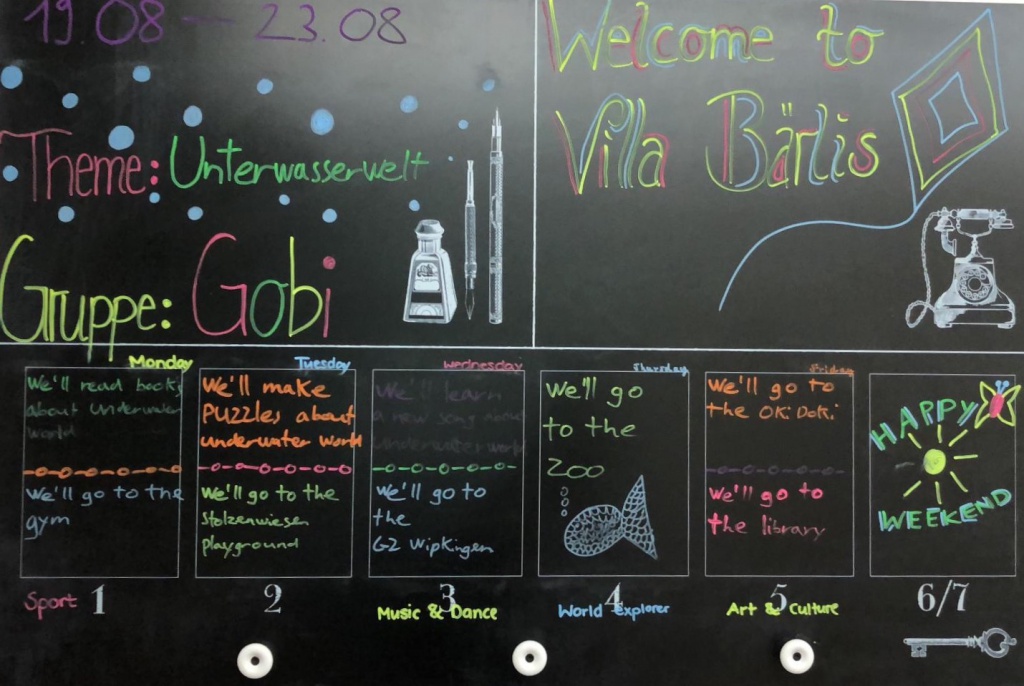 19.08 — 23.08
Theme: Unterwasserwelt
Gruppe: Gobi
Welcome to
Villa Bärlis
Monday
We'll read books
about Underwater
world
We'll go to the
gym
Sport 1
Tuesday
We'll make
PUZZLES about
underwater world
We'll go to the
Stolzenwiesen
playground
2
Wednesday
We'll learn
a new song about
underwater world
We'll go to
the
GZ Wipkingen
3
Music & Dance
Thursday
We'll go
to the
Zoo
4
World explorer
Friday
We'll go to
the OKiDoki
We'll go to
the library
5
Art & Culture
HAPPY
WEEKEND
6/7